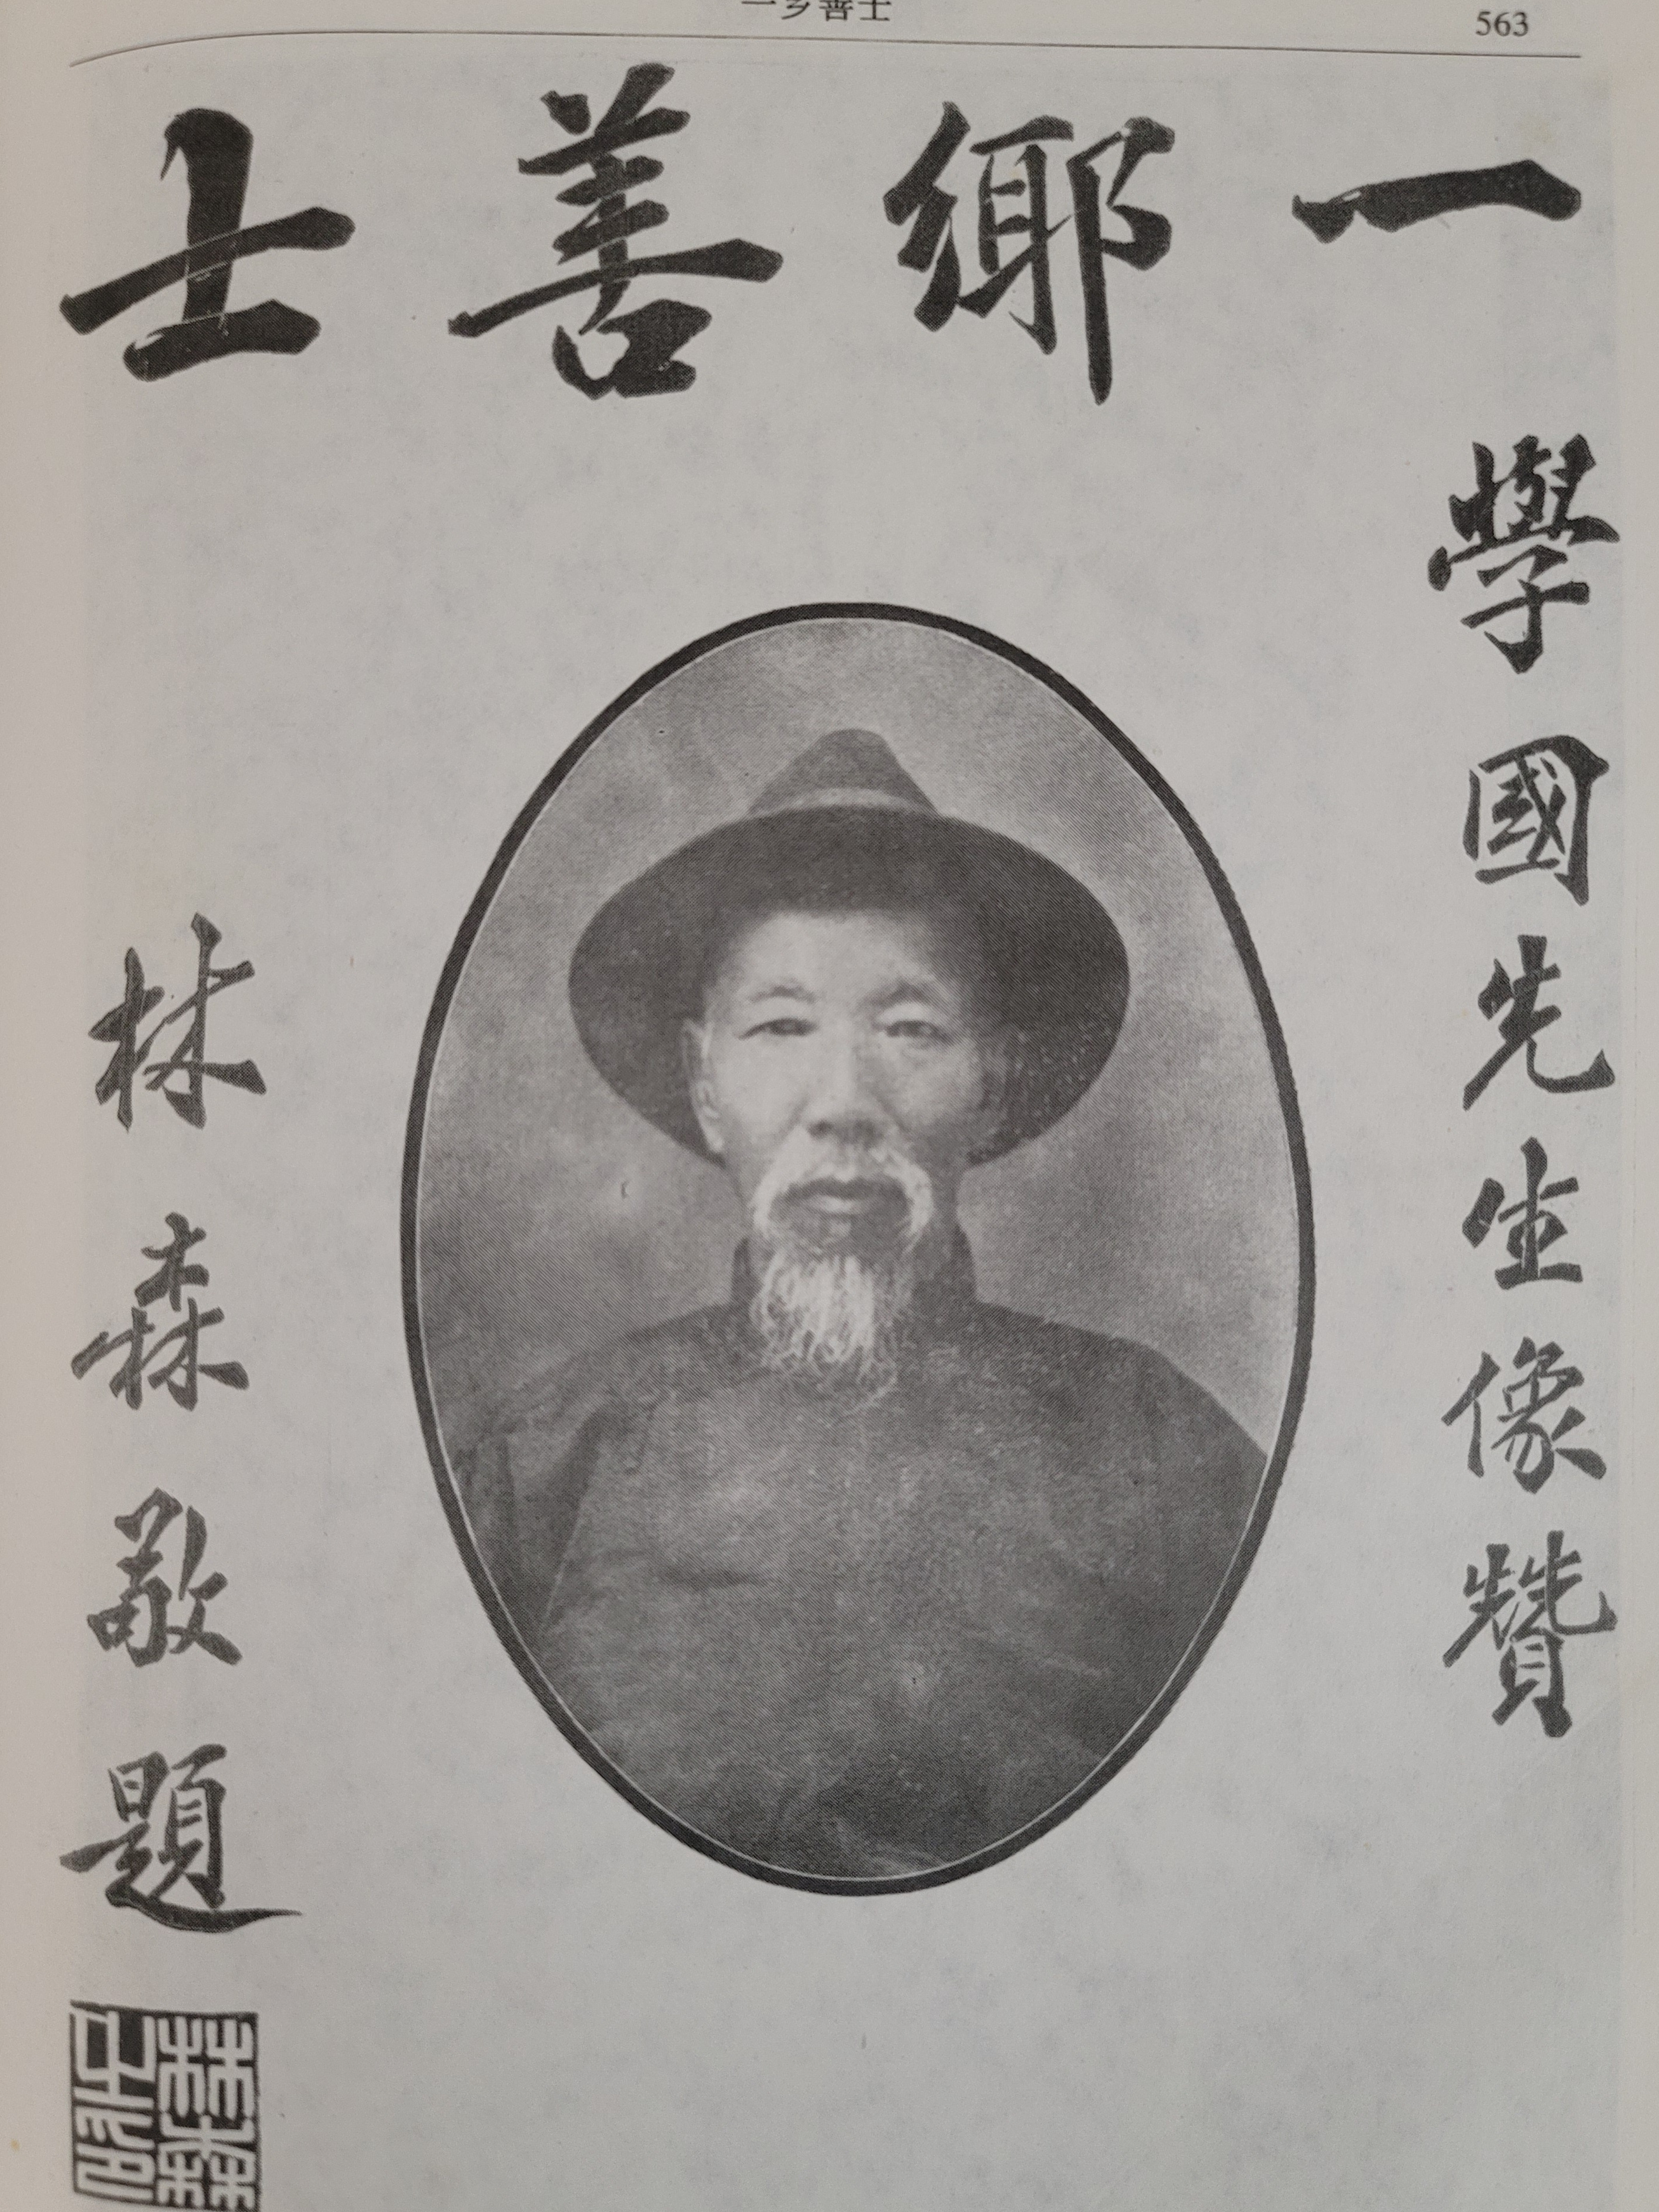 一乡善士
563
一鄉善士
學國先生像贊
林森敬題
林森之印